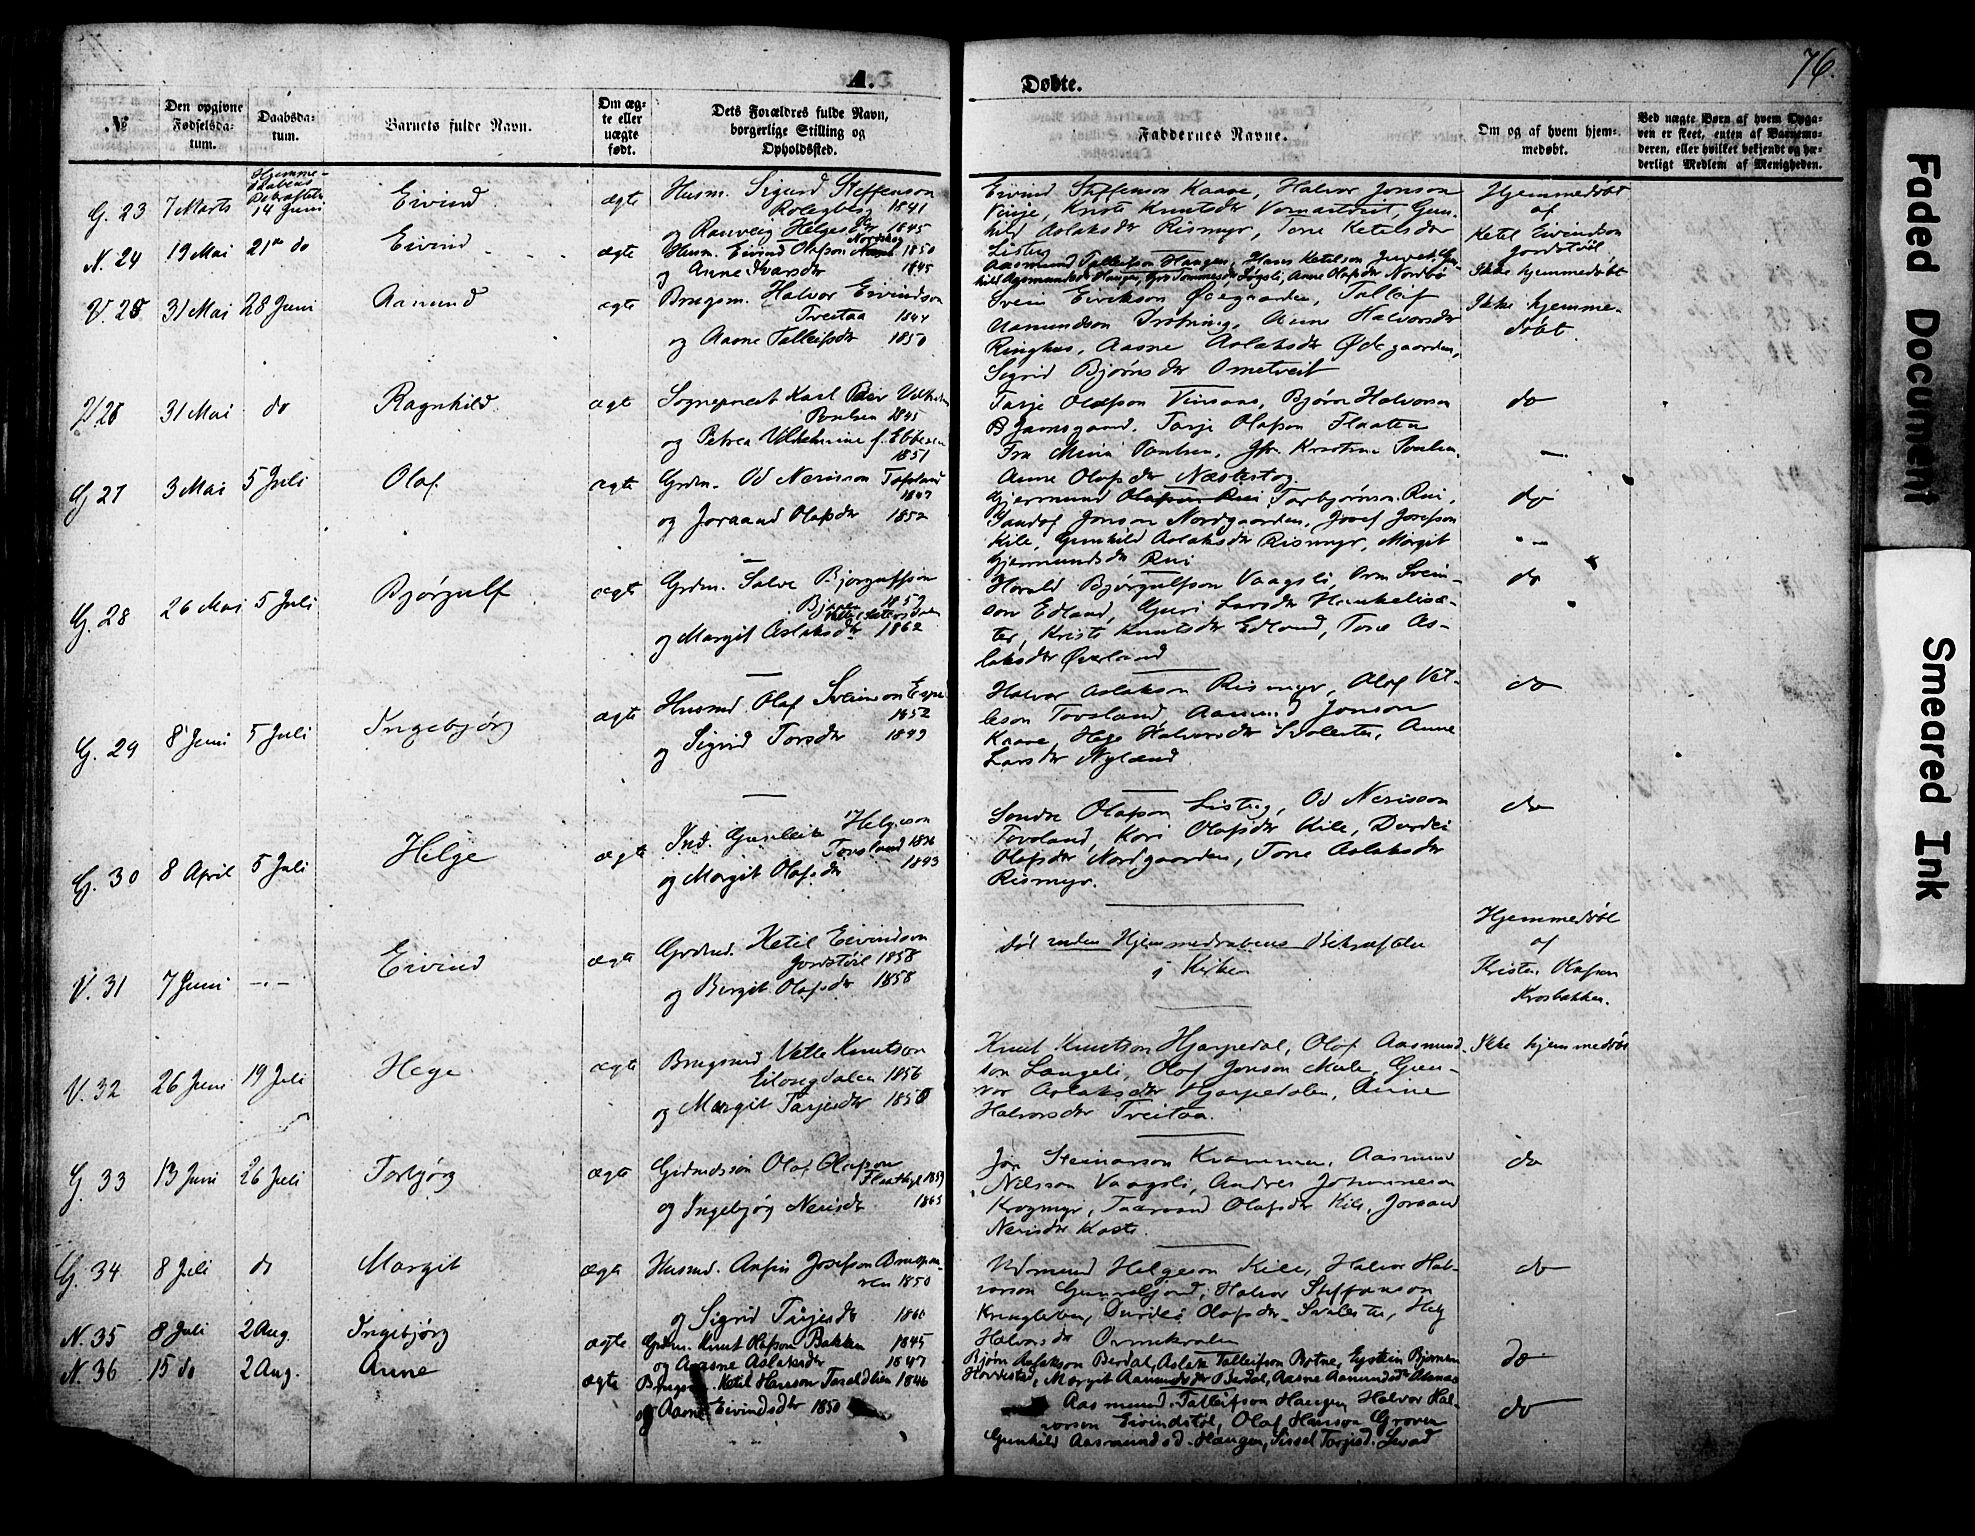 A.
Døbte.
76.
№
Den opgivne Fødselsda-tum.
Daabsda-tum.
Barnets fulde Navn.
Om æg-te eller uægte født.
Dets Forældres fulde Navn, borgerlige Stilling og Opholdssted.
Faddernes Navne.
Om og af hvem hjem-medøbt.
Ved uægte Børn af hvem Opga-ven er skeet, enten af Barnemo-deren, eller hvilket bekjendt og hæ-derligt Medlem af Menigheden.
G. 23 7 Marts
14 Juni
Eivind
ægte
Husm. Sigurd Steffenson
1841
og Ranveig Helgesdtr 1845
Eivind Steffenson Kaave, Halvor Jonson
Vinje, Kristi Knutsdtr
hild Aslaksdtr Rismyr, Tone Ketelsdtr
Listog
Hjemmedøbt
af
Ketel Eivindson
Jordstøil
N. 24 19 Mai 21de do
Eivind
ægte
Husm. Eivind Olafson 1850
og Anne Ivarsdtr 1845
Aasmund Talleifson Haugen, Hans Ketelson
Anne Olafsdtr Nordbø
Ikke hjemmedøbt
V. 25 31 Mai 28 Juni
Aamund
ægte
Brugsm. Halvor Eivindson
Treitaa 1844
og Aasne Talleifsdtr 1850
Svein Eirikson Øegaarden, Talleif
Aamundson Anne Halvorsdtr
Ringhus, Aasne Aslaksdtr Ødegaarden,
Sigrid Bjørnsdtr Ometveit
Ikke hjemme-
døbt
V. 26 31 Mai do
Ragnhild
ægte
Sogneprest Karl
Poulsen 1845
og Petrea Vilhelmine f. Ebbesen
1851
Tarje Olafson Vinsaas, Bjørn Halvorson
Tarje Olafson Flaaten
Fru Mina Poulsen, Kristine Poulsen
Anne Olafsdtr Næslestog.
do
G. 27 3 Mai 5 Juli
Olaf
ægte
Grdm. Od Nerisson Tovsland
1847
og Joraand Olafsdtr 1852
Gjermund Olafson Rui Torbjørnson Rui,
Jonson Nordgaarden, Josef Josefson
Kile, Gunhild Aslaksdtr Rismyr, Margit
Gjermundsdtr Rui
do
G. 28 26 Mai 5 Juli
Bjørgulf
ægte
Grdm. Salve Bjørgulfson
og Margit Aslaksdtr 1862
Harald Bjørgulfson Vaagsli, Orm Svein-
son Edland, Guri Larsdtr Haukelisæ-
ter, Kristi Knutsdtr Edland, Tone As-
laksdtr Øverland
do
G. 29 8 Juni 5 Juli
Ingebjørg
ægte
Husmd. Olaf Sveinson
1852
og Sigrid Torsdtr 1849
Halvor Aslakson Rismyr, Olaf Vet-
leson Tovsland, Aamund Jonson
Kaave, Hege Halvorsdtr Svalestu, Anne
Larsdtr Nyland
do
G. 30 8 April 5 Juli
Helge
ægte
Ind. Gunleik Helgeson
Tovsland 1836
og Margit Olafsdtr 1843
Sondre Olafson Listog, Od Nerisson
Tovsland, Kari Olafsdtr Kile, Durdei
Olafsdtr Nordgaarden, Tone Aslaksdtr
Rismyr.
do
V. 31 7 Juni -.-
Eivind
ægte
Grdmd. Ketil Eivindson
Jordstøil 1858
og Birgit Olafsdtr 1858
død inden Hjemmedaabens Bekræftelse
i Kirken
Hjemmedøbt
af
Kristen Olafson
Krosbakken.
V. 32 26 Juni 19 Juli
Hege
ægte
Brugsmd Vetle Knutson
1856
og Margit Tarjeisdtr 1850
Knut Knutson Hjarpedal, Olaf Aasmund-
son Langeli, Olaf Jonson Mule, Gun-
vor Aslaksdtr Hjarpedalen, Anne
Halvorsdtr Treitaa.
Ikke hjemmedøbt
G. 33 13 Juni 26 Juli
Torbjørg
ægte
Grdmdssøn Olaf Olafson
1859
og Ingebjørg Nerisdtr 1865
Jon Steinarson Krammen, Aasmund
Nilsson Vaagsli, Andres Johanneson
Krogmyr, Taaraand Olafsdtr Kile, Joraand
Nerisdtr Kaste.
do
G. 34 8 Juli do
Margit
ægte
Husmd. Anfin Josefson
1850
og Sigrid Tarjeisdtr 1860
Udmund Helgeson Kile, Halvor Hal-
vorson Gunvaljord, Halvor Steffenson
Durdei Olafsdtr Svalestu, Helg
Halvorsdtr
do
N. 35 8 Juli 2 Aug.
Ingebjørg
ægte
Grdm. Knut Olafson Bakken 1845
og Aasne Aslaksdtr 1847
Bjørn Aslakson Berdal, Aslak Talleifson Botne, Eystein Bjørnson
Hovdestad, Margit Aamundsdtr Berdal, Aasne Aamundsdtr
do
N. 36 15 do 2 Aug.
Anne
ægte
Ketil Hanson 1846
og Aasne Eivindsdtr 1850
Aasmund Talleifson Haugen, Halvor Hal-
vorson Eivindstøl, Olaf Hanson Groven
Gunhild Aasmundsd. Haugen, Sissel Torjusd.
do
Faded Document
Smeared Ink